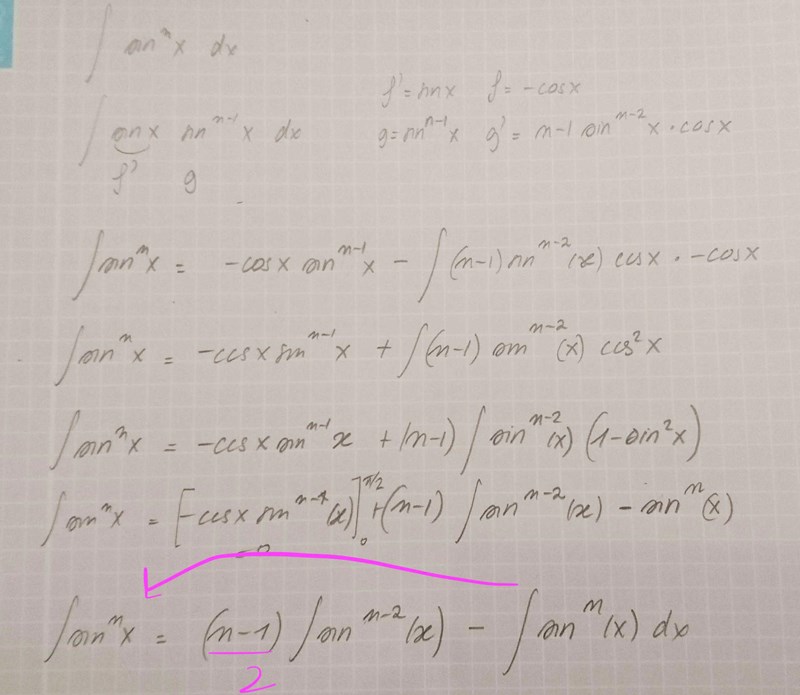 ∫ sinⁿx dx
f' = sinx f = -cosx
∫ sinx sinⁿ⁻¹x dx g = sinⁿ⁻¹x g' = n-1 sinⁿ⁻²x · cosx
f' g
∫ sinⁿx = -cosx sinⁿ⁻¹x - ∫ (n-1) sinⁿ⁻²(x) cosx · -cosx
∫ sinⁿx = -cosx sinⁿ⁻¹x + ∫ (n-1) sinⁿ⁻²(x) cos²x
∫ sinⁿx = -cosx sinⁿ⁻¹x + (n-1) ∫ sinⁿ⁻²(x) (1-sin²x)
∫ sinⁿx = [-cosx sinⁿ⁻¹(x)]₀^π/2 + (n-1) ∫ sinⁿ⁻²(x) - sinⁿ(x)
=0
∫ sinⁿx = (n-1) ∫ sinⁿ⁻²(x) - ∫ sinⁿ(x) dx
2